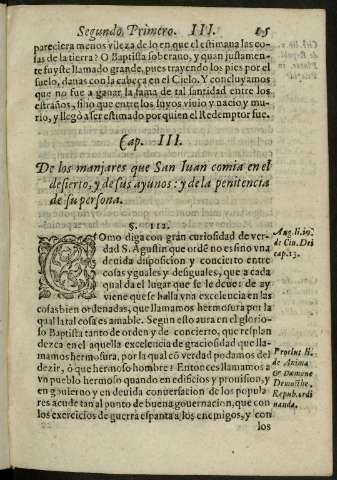 Segundo, Primero. III. 85
pareciera menos vileza de lo en que el estimaua las co-
sas de la tierra? O Baptista soberano, y quan justamen-
te fuyste llamado grande, pues trayendo los pies por el
suelo, dauas con la cabeça en el Cielo. Y concluyamos
que no fue a ganar la fama de tal santidad entre los
estraños, sino que entre los suyos viuio y nacio y mu-
rio, y llegò a ser estimado por quien el Redemptor fue.
Cap. III.
De los manjares que San Iuan comia en el
desierto, y de sus ayunos: y de la penitencia
de su persona.
§. 112.
COmo diga con gran curiosidad de ver-
dad S. Agustin que ordẽ no es sino vna
deuida disposicion y concierto entre
cosas yguales y desiguales, que a cada
qual da el lugar que se le deue: de ay
viene que se halla vna excelencia en las
cosas bien ordenadas, que llamamos hermosura por la
qual la tal cosa es amable. Segun esto aura en el glorio-
so Baptista tanto de orden y de concierto, que resplan
dezca en el aquella excelencia de graciosidad que lla-
mamos hermosura, por la qual cõ verdad podamos del
dezir, ò que hermoso hombre! Entonces llamamos a
vn pueblo hermoso quando en edificios y prouision, y
en gouierno y en deuida conuersacion de los popula
res acude tan al punto de buena gouernacion, que con
los exercicios de guerra espanta a los enemigos, y con
los
Aug. li. 19.
de Ciu. Dei
cap. 13.
Proclus li.
de Anima
& Dæmone
Demosthe.
Repub. ordi
nanda.